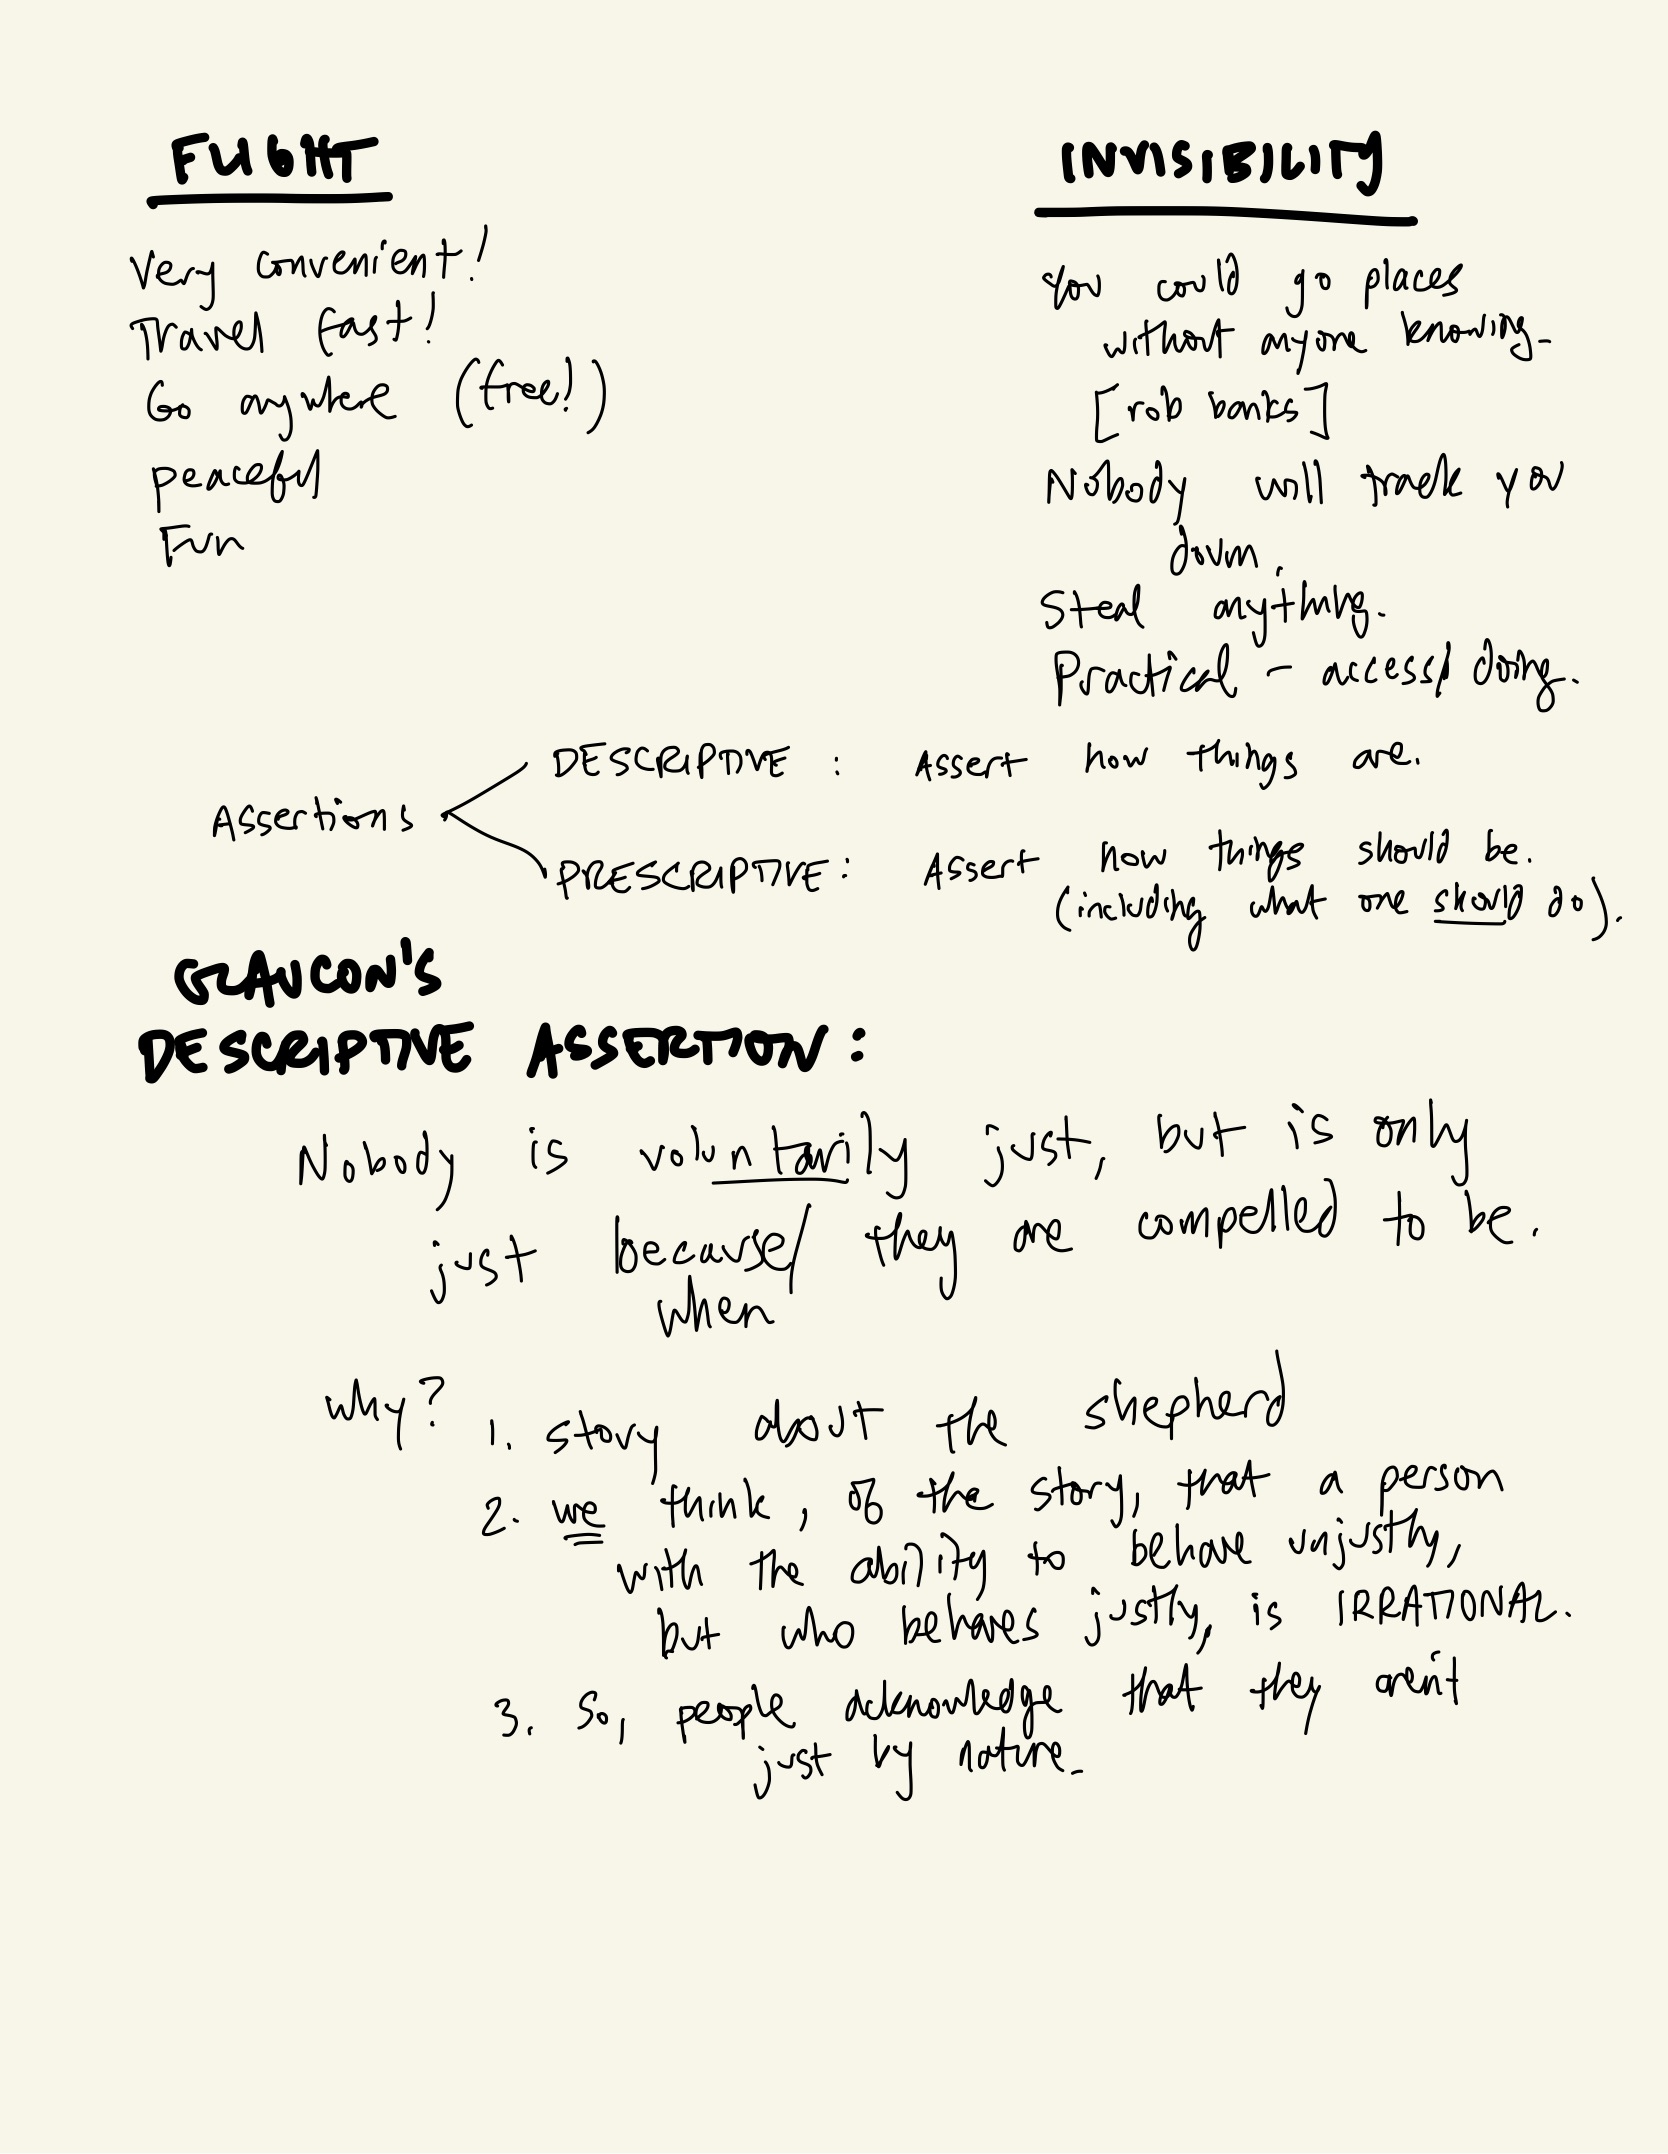 FLIGHT
Very convenient!
Travel fast!
Go anywhere (free!)
peaceful
Fun
INVISIBILITY
You could go places
without anyone knowing.
[rob banks]
Nobody will track you
down.
Steal anything.
Practical - access/doing.
Assertions
DESCRIPTIVE : Assert how things are.
PRESCRIPTIVE : Assert how things should be.
(including what one should do).
GLAUCON'S
DESCRIPTIVE ASSERTION :
Nobody is voluntarily just, but is only
just because/ they are compelled to be.
when
why?
1. story about the shepherd
2. we think, of the story, that a person
with the ability to behave unjustly,
but who behaves justly, is IRRATIONAL.
3. So, people acknowledge that they aren't
just by nature.